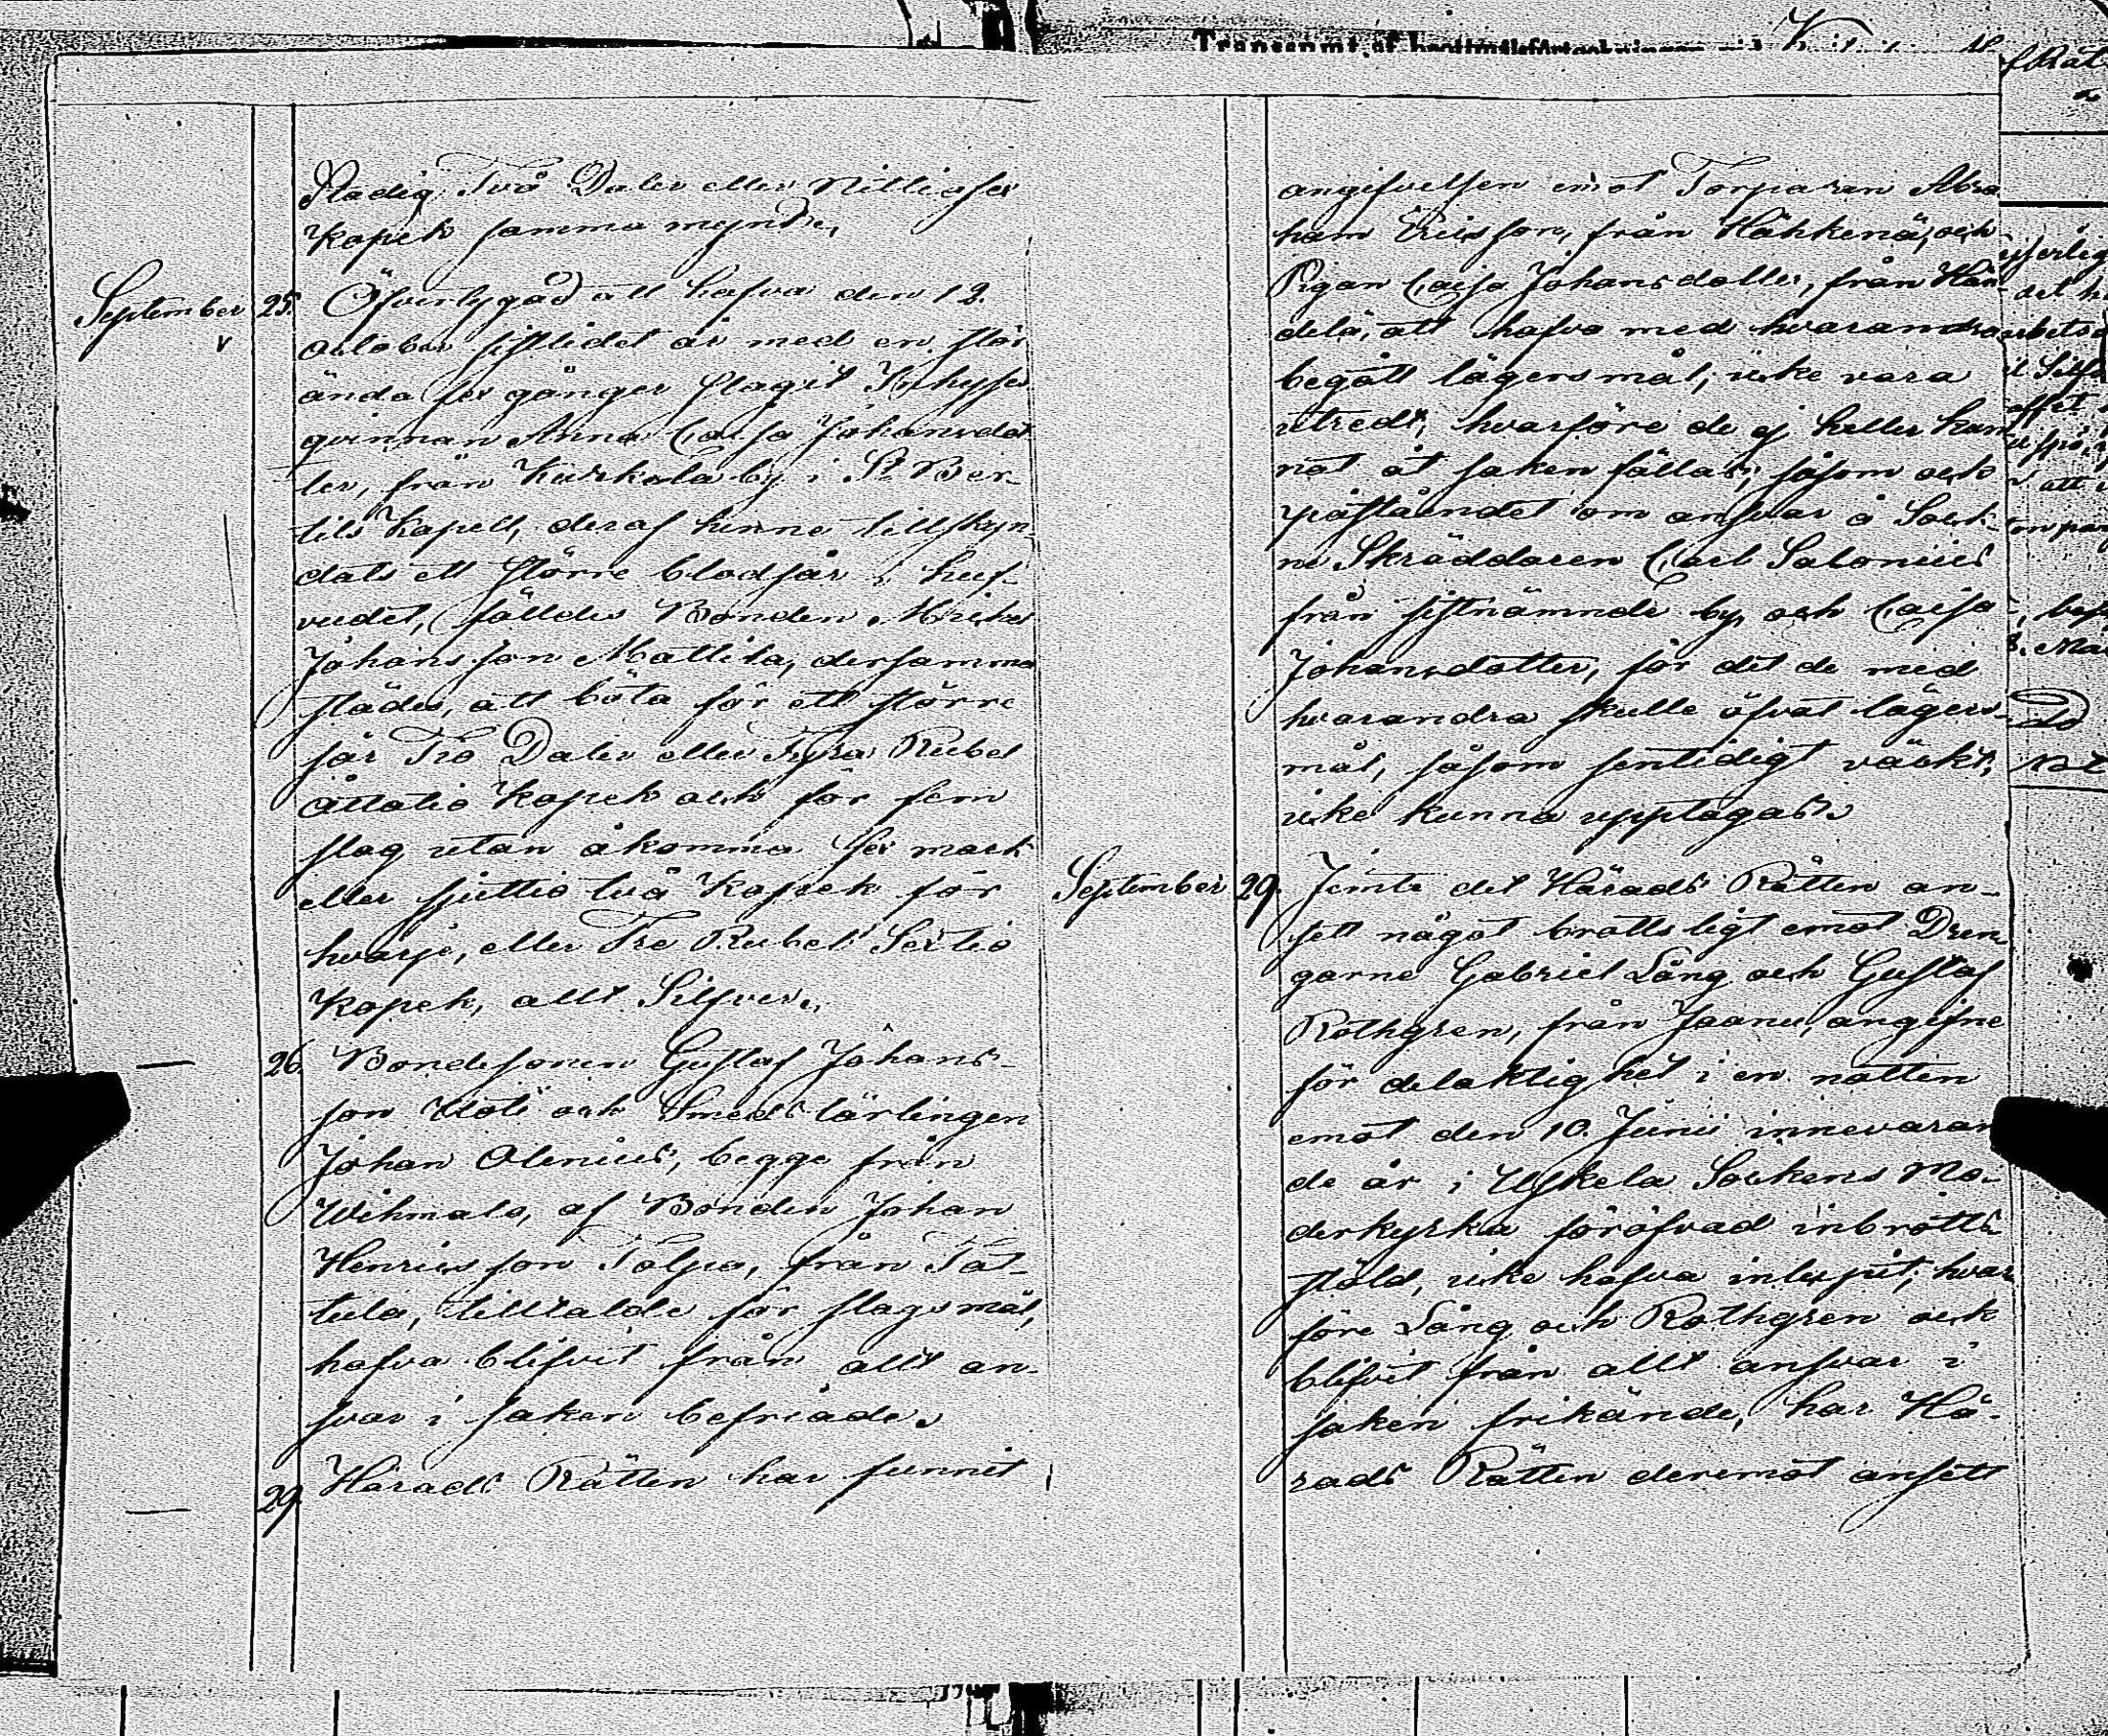 Stadig Två Daler eller Nittiosex
Kopek samma mynt.
September 25. Öfvertygad att hafva den 12.
October sistlidet år med en stör
ända sex gånger slagit Inhyses
qvinnan Anna Caisa Johansdot
ter, från Kurkela by i St Ber-
tils Kapell, deraf henne tillskyn-
dats ett större blodsår i huf-
vudet, fälldes Bonden Mickel
Johansson Mattila, dersamma
städes, att böta för ett större
sår Tio Daler eller Fyra Rubel
åttatio Kopek och för fem
slag utan åkomma sex mark
eller sjuttio två Kopek för
hvarje, eller Tre Rubel Sextio
Kopek, allt Silfver.
26. Bondesonen Gustaf Johans-
son Uoti och Smedslärlingen
Johan Olenius, begge från
Wihmalo, af Bonden Johan
Henricsson Tolpo, från Tat-
tula, tilltalde för slagsmål,
hafva blifvit från allt an-
svar i saken befriade.
29. Härads Rätten har funnit
angifvelsen emot Torparen Abra
ham Ericsson, från Hähkenä, och
Pigan Caisa Johansdotter, från Hän
delä, att hafva med hvarandra
begått lägersmål, icke vara
utredt, hvarföre de ej heller kun
nat åt saken fällas; såsom ock
påståendet om ansvar å Sock-
ne Skräddaren Carl Salonius
från sistnämnde by och Caisa
Johansdotter, för det de med
hvarandra skulle öfvat lägers-
mål, såsom sentidigt väckt,
icke kunna upptagas.
September 29. Jemte det Härads Rätten an-
sett något brottsligt emot Dren
garne Gabriel Lång och Gustaf
Rothgren, från Joanu, angifne
för delaktighet i en natten
emot den 10. Junii innevaran
de år i Uskela Sockens Mo-
derkyrka föröfvad inbrotts
stöld, icke hafva inlupit; hvar
före Lång och Rothgren ock
blifvit från allt ansvar i
saken frikände, har Hä-
rads Rätten deremot ansett